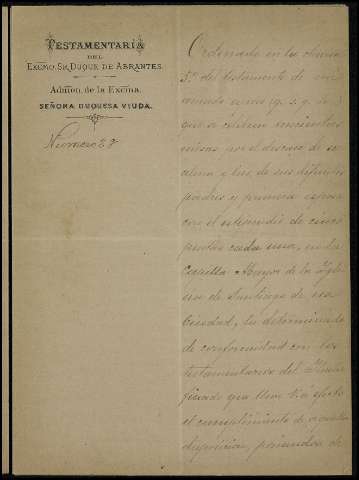 TESTAMENTARÍA
DEL
EXCMO. SR. DUQUE DE ABRANTES.
Admon. de la Excma.
SEÑORA DUQUESA VIUDA.
Numero 27
Ordenado en la clausula
5ª del testamento de mi
amado (q. s. g. h.)
que se celebren
misas por el descanso de su
alma y las de sus difuntos
padres y primera esposa
con el estipendio de cinco
pesetas cada una, en la
Capilla Mayor de la Igle
sia de Santiago de esa
Ciudad, he determinado
de conformidad con los
testamentarios del
finado que lleve V. á efecto
el cumplimiento de aquella
disposicion, poniendose de